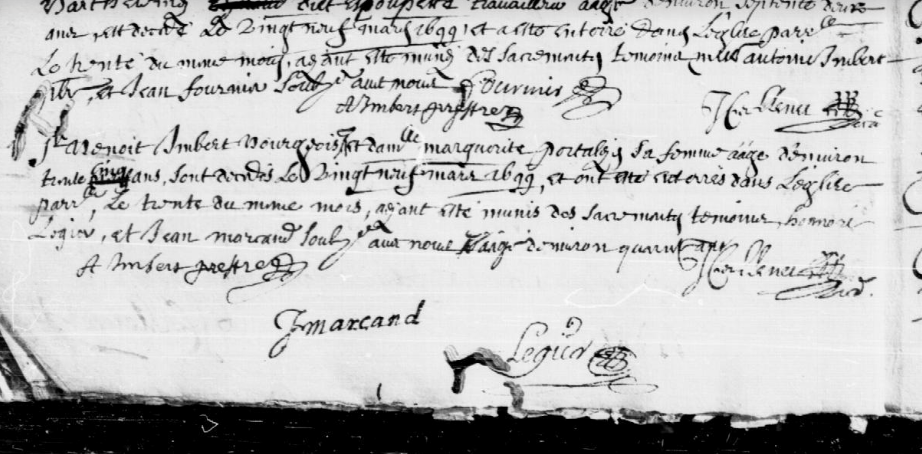 dit travailleur aagé d'environ septente deux
ans, est decede Le Vingt neuf mars 1699, et a esté enterré dans L'eglise parr.lle
Le trente du mme mois, ayant esté munis des sacrements temoins antoine Imbert
et Jean fournier soub.ez avec nous
A Imbert prestre
Sr Benoit Imbert bourgeois, et dam.lle marguerite portalys sa femme aage d'environ
trente cinq ans, sont decedes Le Vingt neuf mars 1699, et ont esté enterrés dans L'eglise
parr.lle, Le trente du mme mois, ayant esté munis des sacrements temoins, honnoré
Legier, et Jean marcand soub.ez avec nous aagé d'environ quarante ans
A Imbert prestre
J marcand
Legier